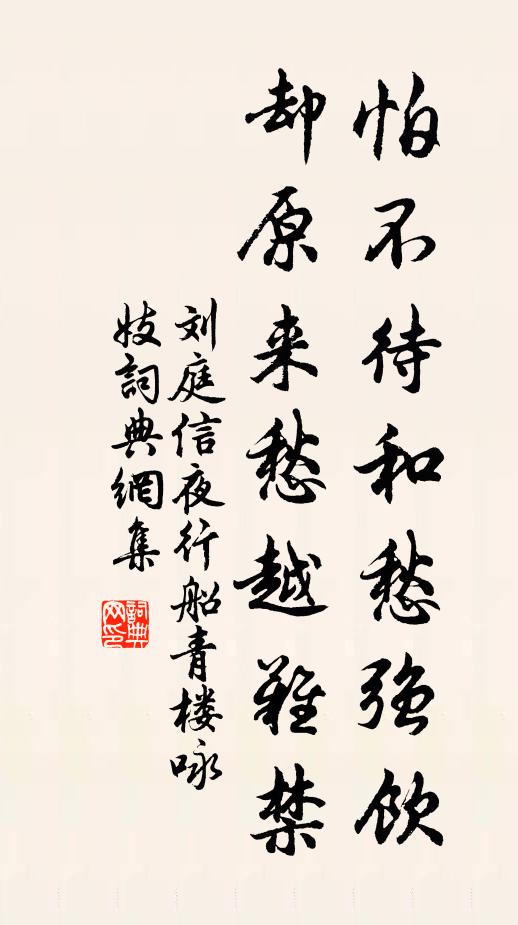 怕不待和愁强飲
却原来愁越難禁
刘庭信夜行船青楼咏
妓詞典網集
詞典网印